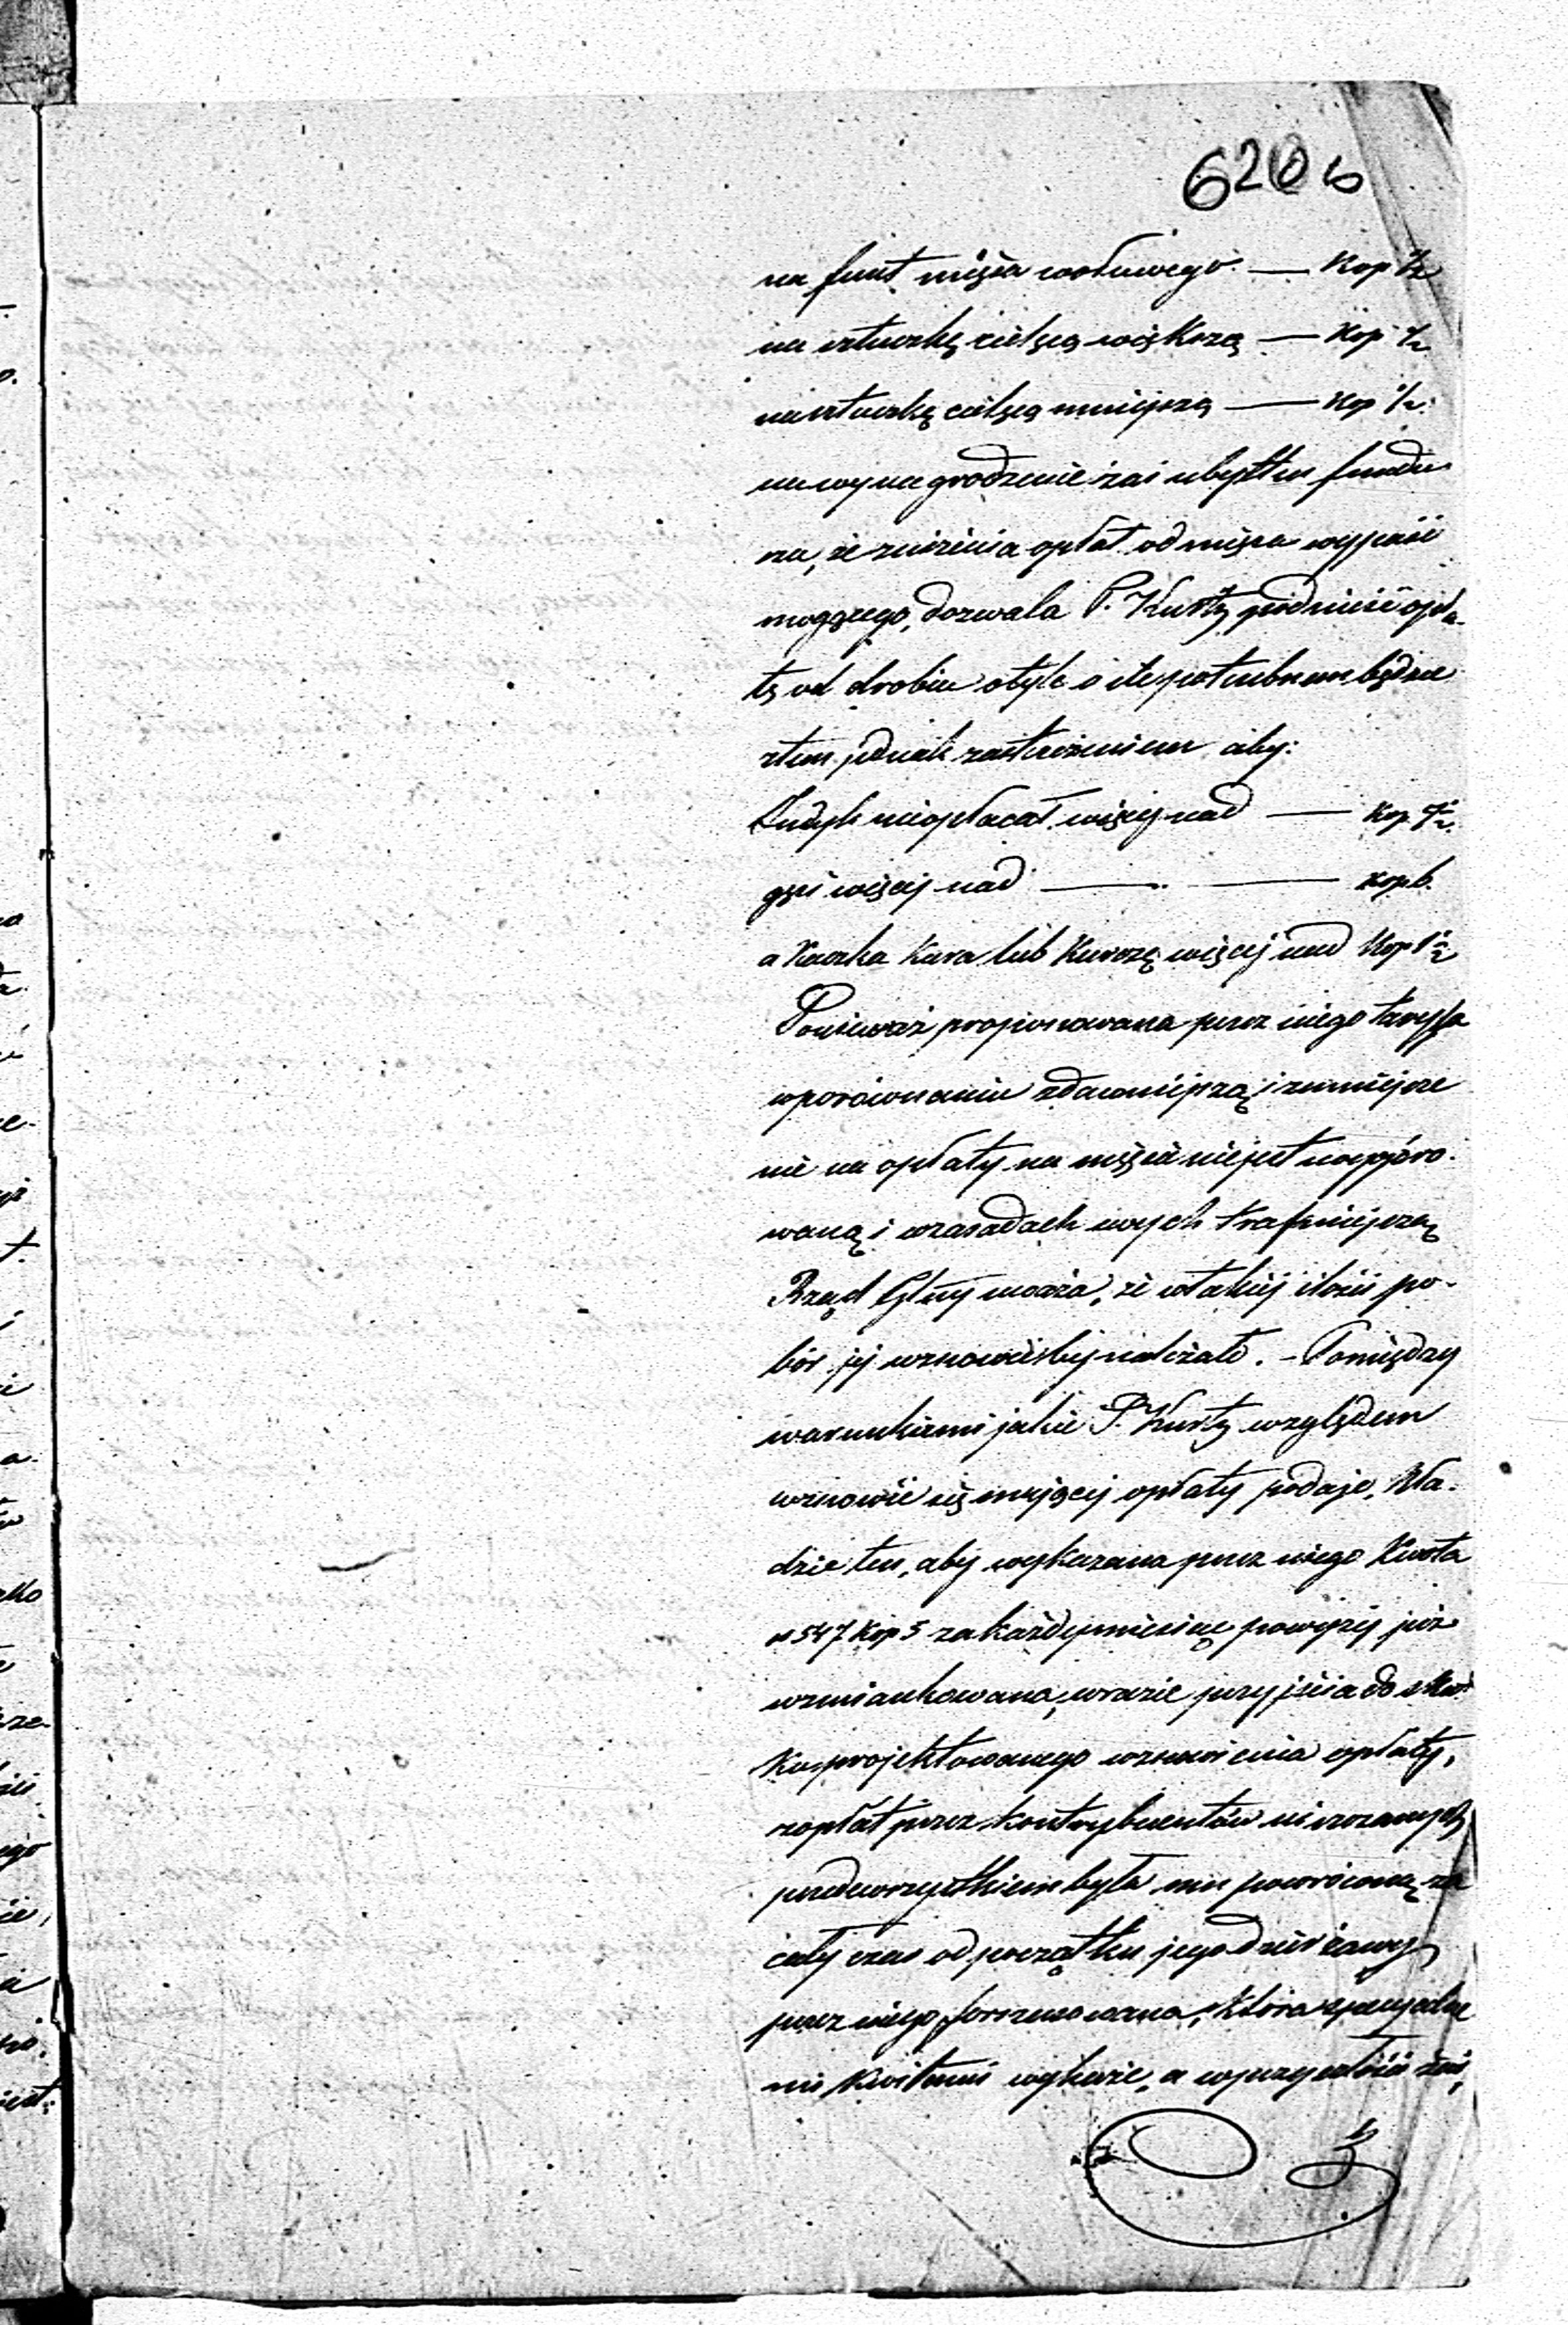 na funt mięsa wołowego — Kop ½
na sztuczkę cielęcą większą — Kop
na sztuczkę cielęcą mniejszą — Kop ½
na wynagrodzenie zaś ubytku fundu
szu, ze zniżenia opłat od mięsa wypaść
mogącego, dozwala P. Kurtz podnieść opła-
tę od drobiu o tyle o ile potrzebnem będzie
z tem jednak zastrzeżeniem aby:
Indyk nie opłacał więcej nad — Kop. 7½
gęś więcej nad — — Kop 6.
a Kaczka Kura lub Kurczę więcej nad Kop 1½
Ponieważ proponowana przez niego taryfa
w porównaniu z dawniejszą i zmniejsze
nie na opłaty na mięsie nie jest
i w zasadach swych trafniejszą
Rząd Głny uważa, że w takiej ilości po-
bór jej wznowićby należało. - Pomiędzy
warunkami jakie P. Kurtz względem
wznowić się mającej opłaty podaje, Kła-
dzie ten, aby wykazana przez niego Kwota
rs 547 Kop 5 za każdy miesiąc powyżej już
wzmiankowana, w razie przyjścia do skut
Ku projektowanego wznowienia opłaty,
z opłat przez kontrybuentów uiszczanych
przedewszystkiem była mu powróconą za
cały czas od początku jego dzierżawy
przez niego forszusowana, Która
mi Kwitami wykaże, a w przyszłości zaś,